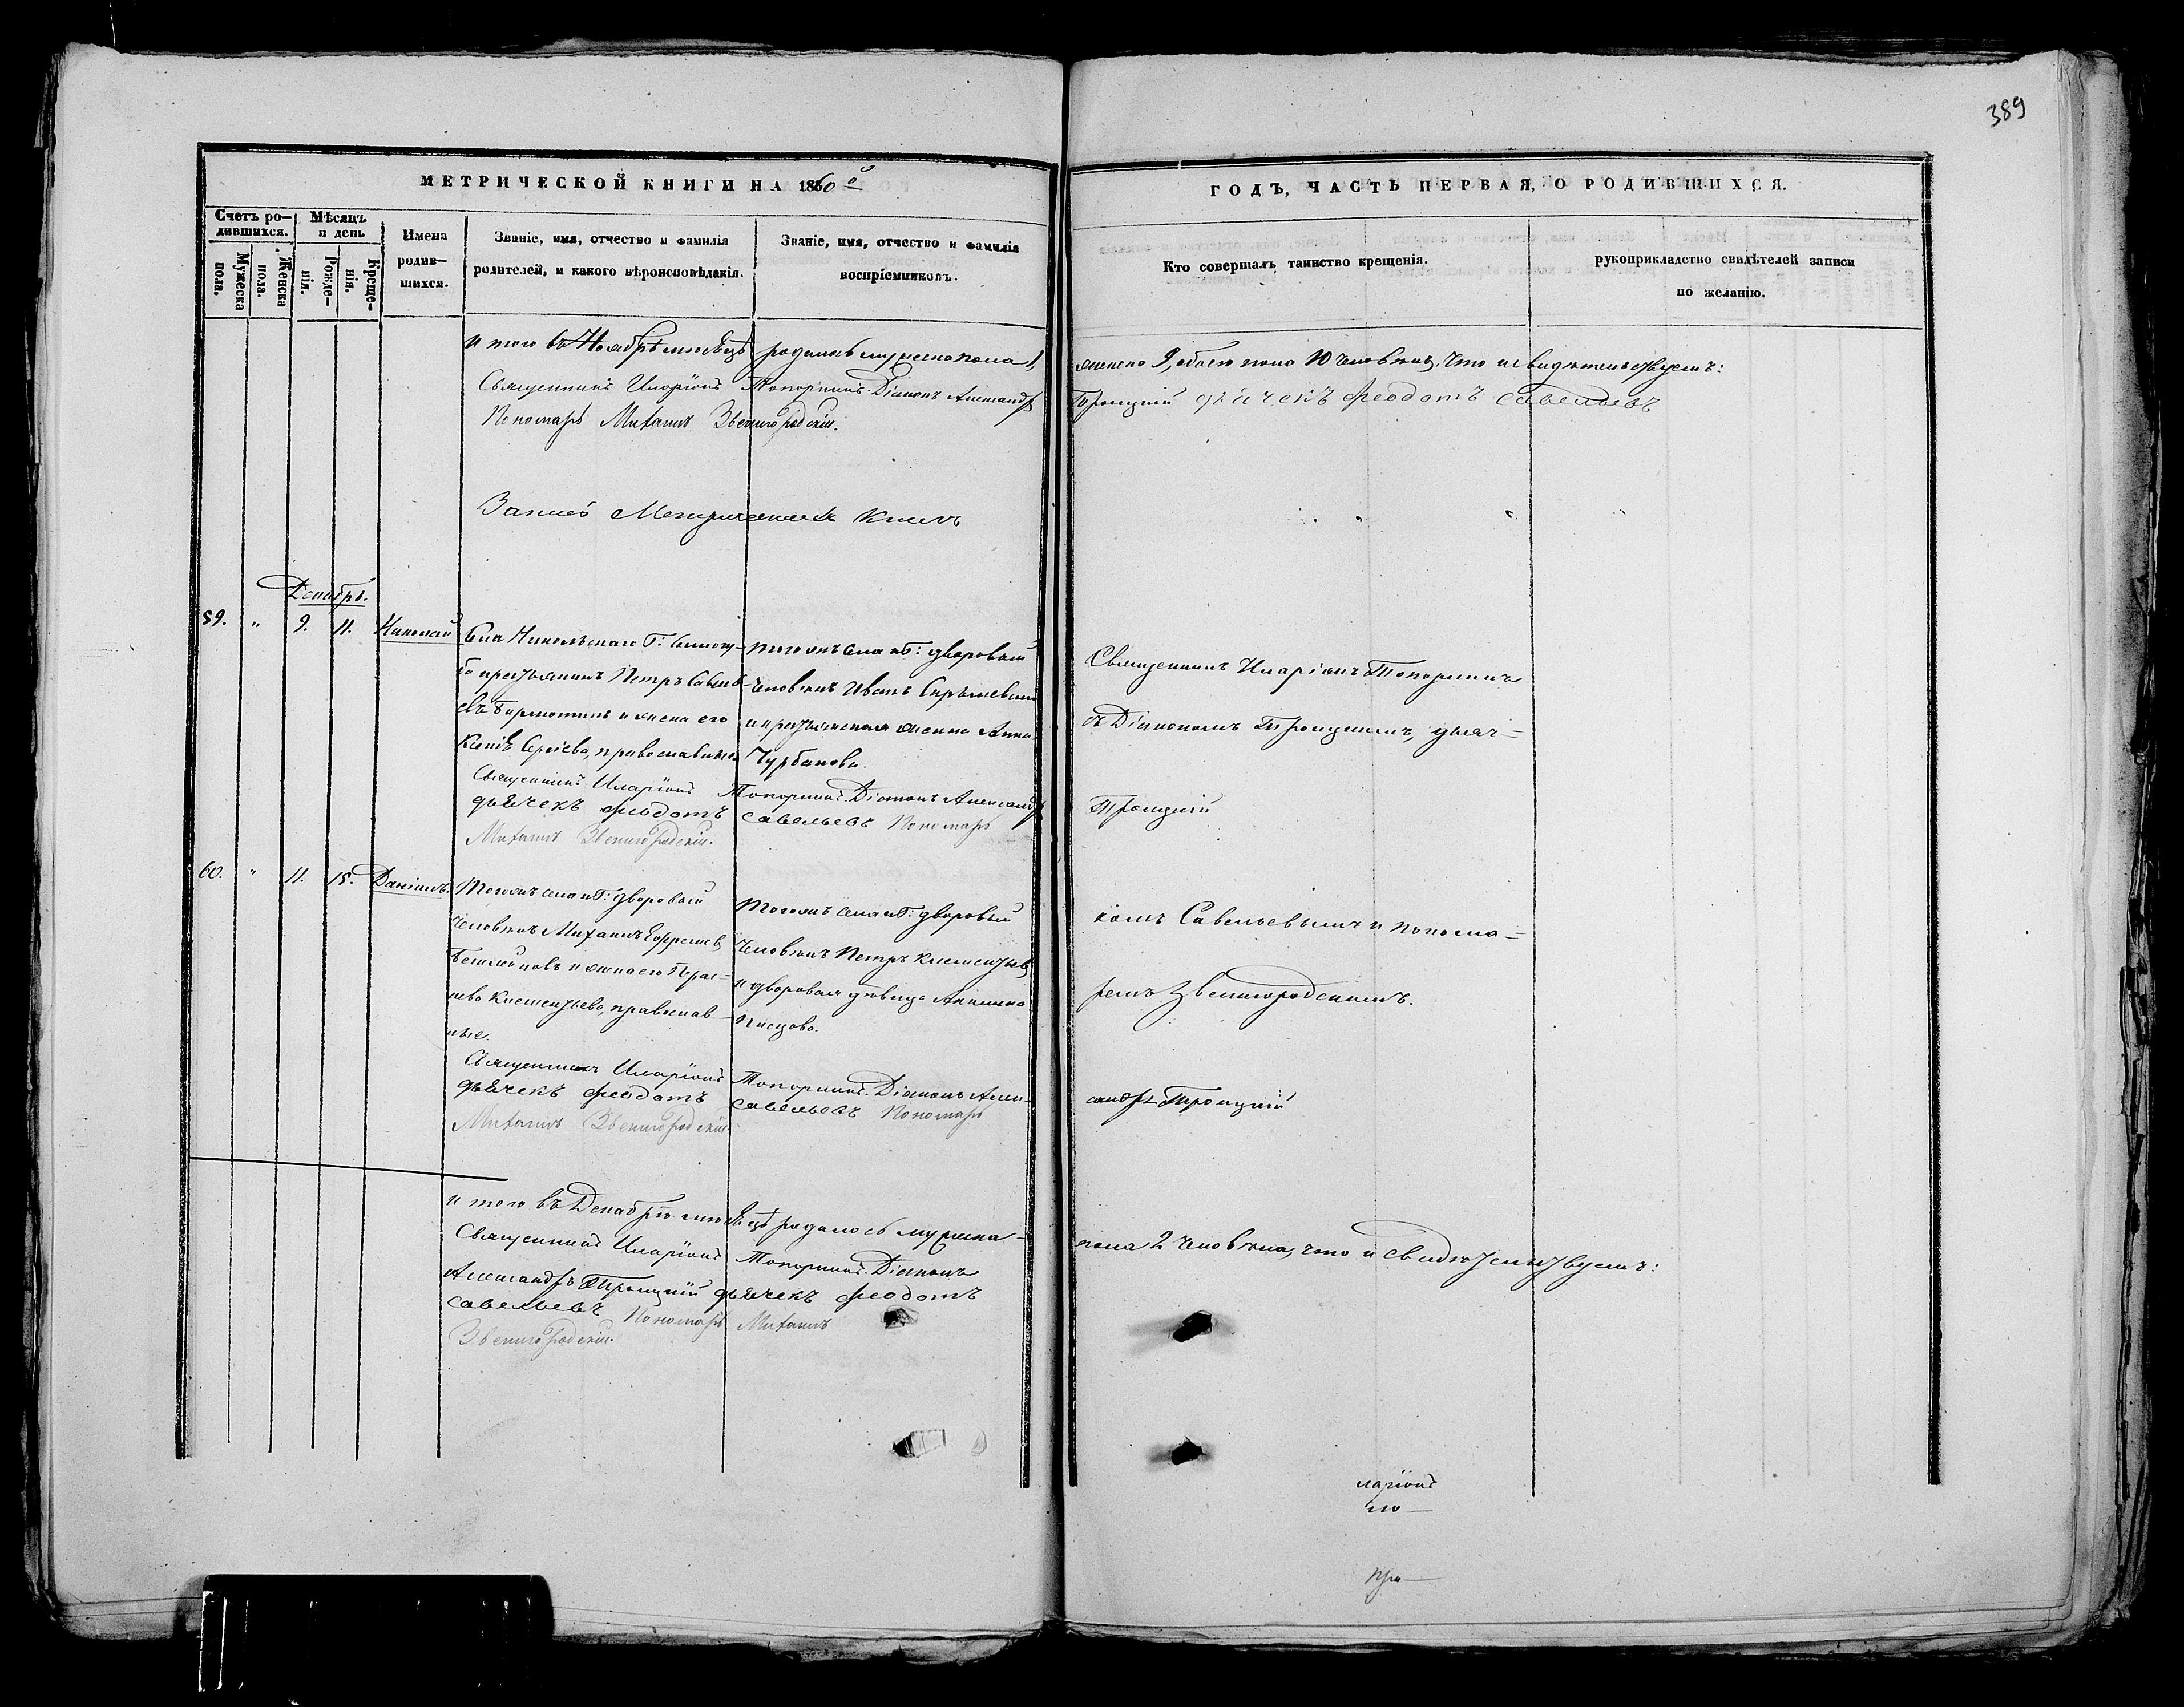 389
МЕТРИЧЕСКОЙ КНИГИ НА 1860й
ГОДЪ, ЧАСТЬ ПЕРВАЯ, О РОДИВШИХСЯ.
Счетъ ро-
дившихся.
Мужеска
пола.
Женска
пола.
Мѣсяцъ
и день
Рожде-
нія.
Креще-
нія.
Имена
родив-
шихся.
Званіе, имя, отчество и фамилія
родителей, и какого вѣроисповѣданія.
Званіе, имя, отчество и фамилія
воспріемниковъ.
Кто совершалъ таинство крещенія.
рукоприкладство свидѣтелей записи
по желанію.
и того въ Ноябрѣ мѣсяцѣ родилось мужеска пола 1,
женска 9, обоего пола 10 человѣкъ, что и свидѣтельствуемъ:
Священникъ Иларіонъ Топорнинъ. Діаконъ Александръ
Троицкій дьячекъ Феодотъ Савельевъ
Пономарь Михаилъ Звенигородскій.
Запись Метрическихъ Книгъ
Декабрь.
59. " 9. 11. Николай
Села Никольскаго Г:
крестьянинъ Петръ Савель-
евъ и жена его
Сергіева, православные.
Тогожъ села Г: дворовый
человѣкъ Иванъ
и крестьянская женка Анна
Чурбанова.
Священникъ Иларіонъ Топорнинъ
съ Діакономъ Троицкимъ, дьяч-
Священникъ Иларіонъ Топорнинъ. Діаконъ Александръ
Троицкій
дьячекъ Феодотъ Савельевъ Пономарь
Михаилъ Звенигородскій.
60. " 11. 15. Даніилъ.
Тогожъ села Г: дворовый
человѣкъ Михаилъ Ефремовъ
и жена его Парас-
кева Климентьева, православ-
ные.
Тогожъ села Г: дворовый
человѣкъ Петръ Климентьевъ
и дворовая дѣвица Акилина
Писцова.
комъ Савельевымъ и понома-
ремъ Звенигородскимъ.
Священникъ Иларіонъ Топорнинъ. Діаконъ Алек-
сандръ Троицкій
дьячекъ Феодотъ Савельевъ Пономарь
Михаилъ Звенигородскій
и того въ Декабрѣ мѣсяцѣ родилось мужеска
пола 2 человѣка, что и свидѣтельствуемъ:
Священникъ Иларіонъ Топорнинъ. Діаконъ
Александръ Троицкій дьячекъ Феодотъ
Савельевъ Пономарь Михаилъ
Звенигородскій.
ларіонъ